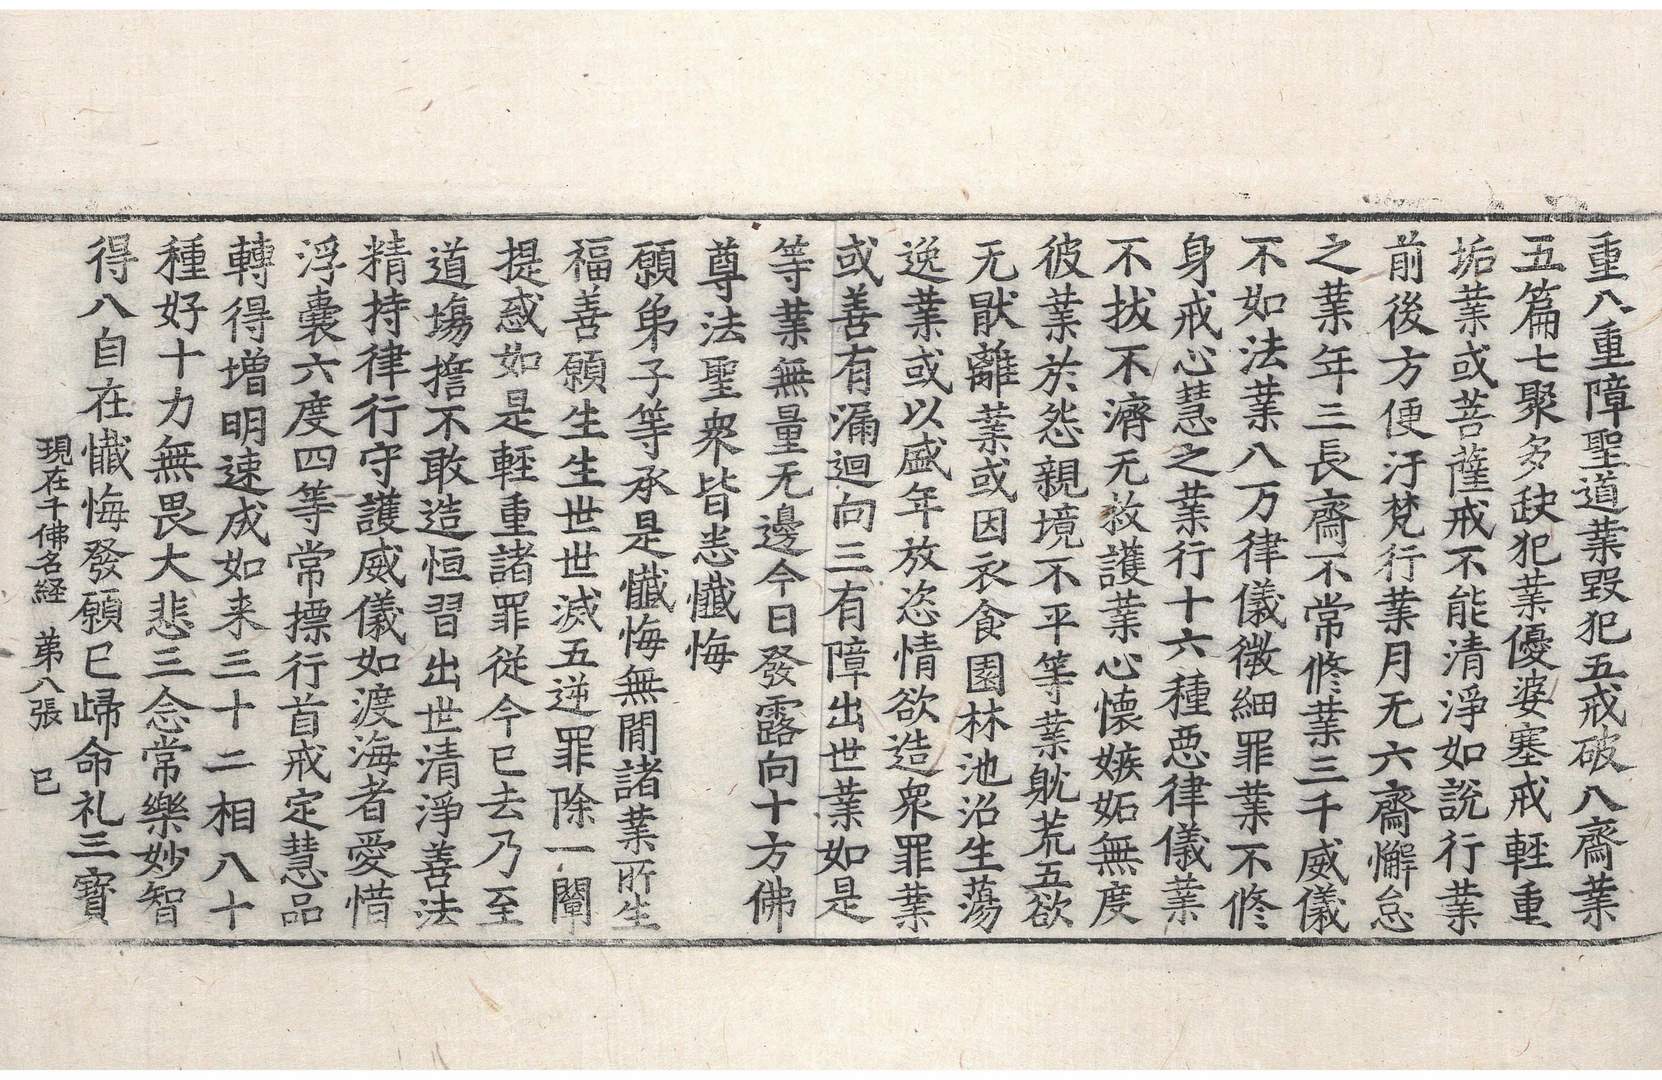 重八重障聖道業毀犯五戒破八齋業
五篇七聚多缺犯業優婆塞戒輕重
垢業或菩薩戒不能清淨如說行業
前後方便汙梵行業月无六齋懈怠
之業年三長齋不常修業三千威儀
不如法業八万律儀微細罪業不修
身戒心慧之業行十六種惡律儀業
不拔不濟无救護業心懷嫉妬無度
彼業於怨親境不平等業躭荒五欲
无猒離業或因衣食園林池沼生蕩
逸業或以盛年放恣情欲造衆罪業
或善有漏迴向三有障出世業如是
等業無量无邊今日發露向十方佛
尊法聖衆皆悉懺悔
願弟子等承是懺悔無間諸業所生
福善願生生世世滅五逆罪除一闡
提惑如是輕重諸罪従今已去乃至
道場擔不敢造恒習出世清淨善法
精持律行守護威儀如渡海者愛惜
浮囊六度四等常摽行首戒定慧品
轉得增明速成如来三十二相八十
種好十力無畏大悲三念常樂妙智
得八自在懺悔發願已歸命礼三寶
現在千佛名経　苐八張　已